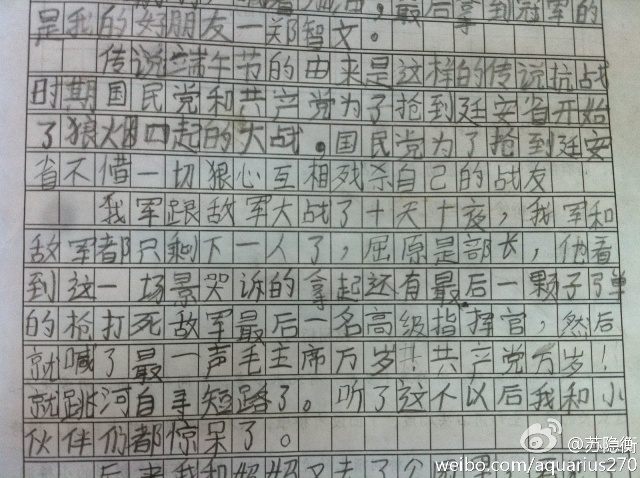 最后拿到冠军的
是我的好朋友一郑智文。
传说端午节的由来是这样的传说抗战
时期国民党和共产党为了抢到廷安省开始
了狼烟四起的大战。国民党为了抢到廷安
省不借一切狠心互相残杀自己的战友
我军跟敌军大战了十天十夜，我军和
敌军都只剩下一人了，屈原是部长，他看
到这一场景哭诉的拿起还有最后一颗子弹
的枪打死敌军最后一名高级指挥官，然后
就喊了最一声毛主席万岁！共产党万岁！
就跳河自寻短路了。听了这个以后我和小
伙伴们都惊呆了。
后来我和妈妈又去了个
@苏隐衡
weibo.com/aquarius270